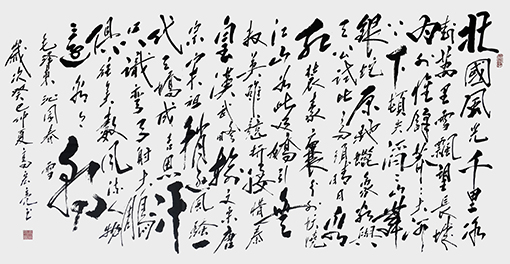 北國風光千里冰
封萬里雪飄望長城
内外惟餘莽莽大河
上下頓失滔滔山舞
銀蛇原馳蠟象欲與
天公試比高須晴日看
紅裝素裹分外妖嬈
江山如此多嬌引無
數英雄競折腰惜秦
皇漢武略輸文采唐
宗宋祖稍遜風騷一
代天驕成吉思汗
只識彎弓射大鵰
俱往矣數風流人物
還看今朝
毛澤東沁園春雪
歲次癸巳仲夏